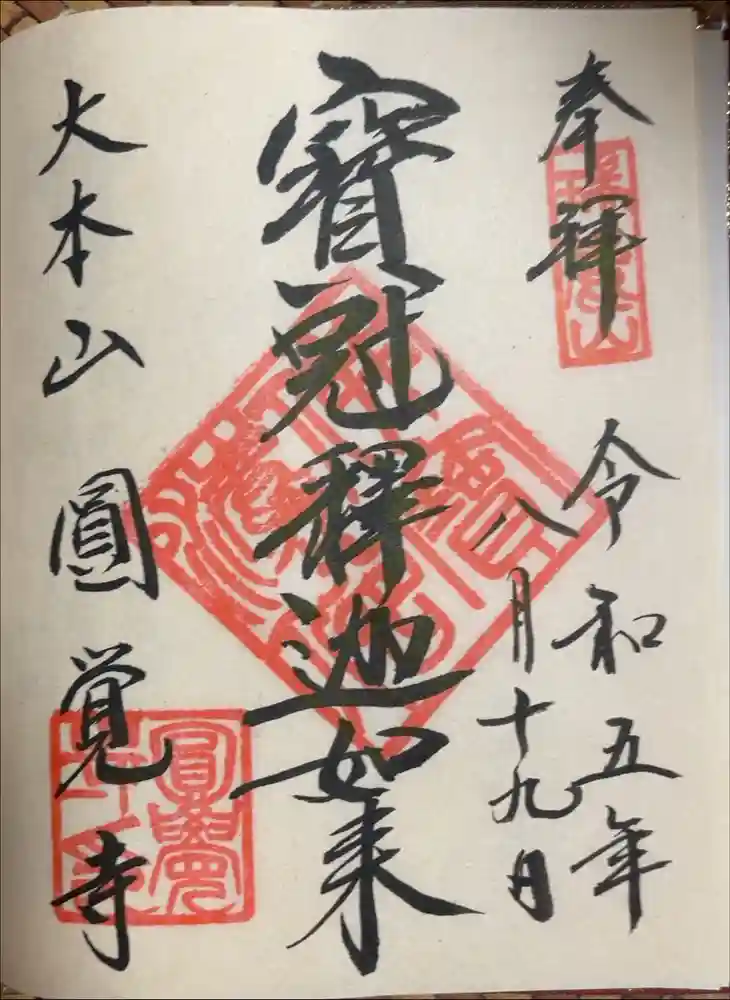 奉拝
令和五年
八月十九日
寶冠釋迦如来
大本山 圓覚寺